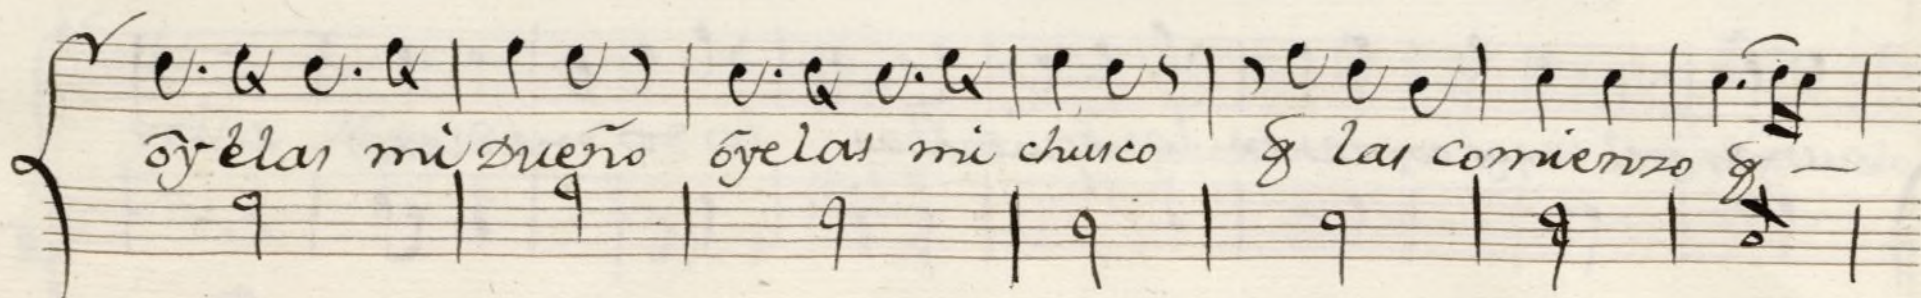 oyelas mi Dueño oyelas mi chusco q̃ las comienzo q̃ —